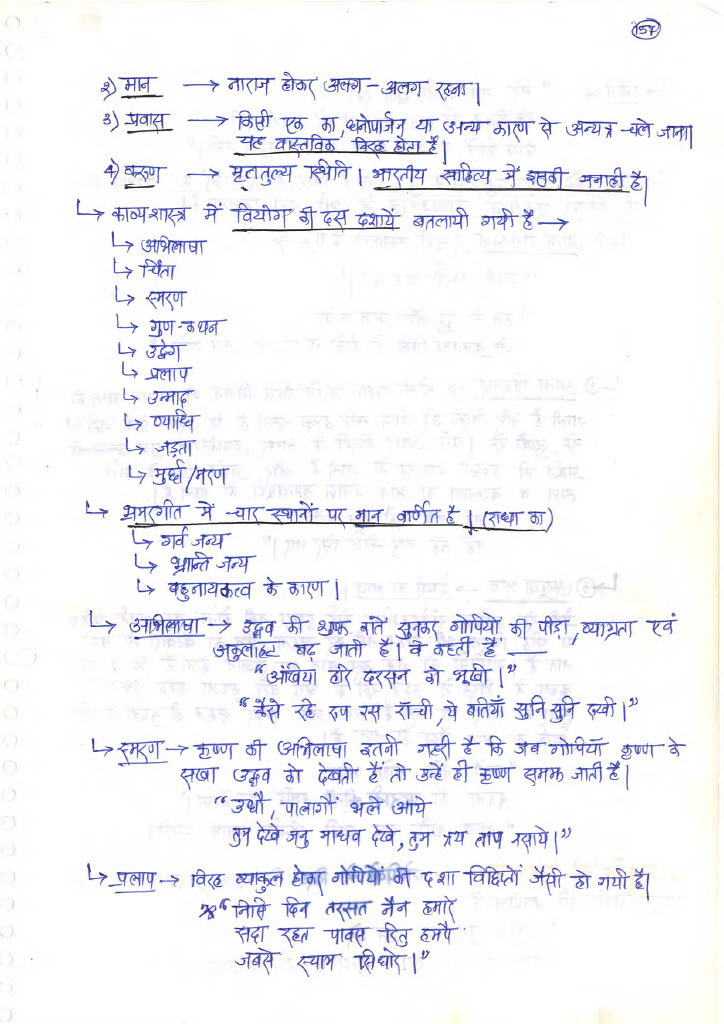 157
२) मान → नाराज होकर अलग-अलग रहना|
३) प्रवास → किसी एक का, धनोपार्जन या अन्य कारण से अन्यत्र चले जाना|
यह वास्तविक विरह होता है|
४) करुण → मृततुल्य स्थिति| भारतीय साहित्य में इसकी मनाही है|
↳ काव्यशास्त्र में वियोग की दस दशायें बतलायी गयी है →
↳ अभिलाषा
↳ चिंता
↳ स्मरण
↳ गुण-कथन
↳ उद्वेग
↳ प्रलाप
↳ उन्माद
↳ व्याधि
↳ जड़ता
↳ मुर्छा/मरण
↳ भ्रमरगीत में चार स्थानों पर मान वर्णित है| (राधा का)
↳ गर्व जन्य
↳ भ्रान्ति जन्य
↳ बहुनायकत्व के कारण|
↳ अभिलाषा → उद्धव की शुष्क बातें सुनकर गोपियों की पीड़ा, व्याग्रता एवं
अकुलाहट बढ़ जाती है| वे कहती हैं —
"अंखिया हरि दरसन की भूखी|"
"कैसे रहे रुप रस राँची, ये बतियाँ सुनि सुनि रुखी|"
↳ स्मरण → कृष्ण की अभिलाषा इतनी गहरी है कि जब गोपियाँ कृष्ण के
सखा उद्धव को देखती हैं तो उन्हें ही कृष्ण समझ जाती है|
"उधौ, पालागौं भले आये
तुम देखे जनु माधव देखे, तुम त्रय ताप नसाये|"
↳ प्रलाप → विरह व्याकुल होकर गोपियों की दशा विक्षिप्तों जैसी हो गयी है|
"निसि दिन तरसत नैन हमारे
सदा रहत पावस रितु हमपै
जबसे स्याम सिधारे|"